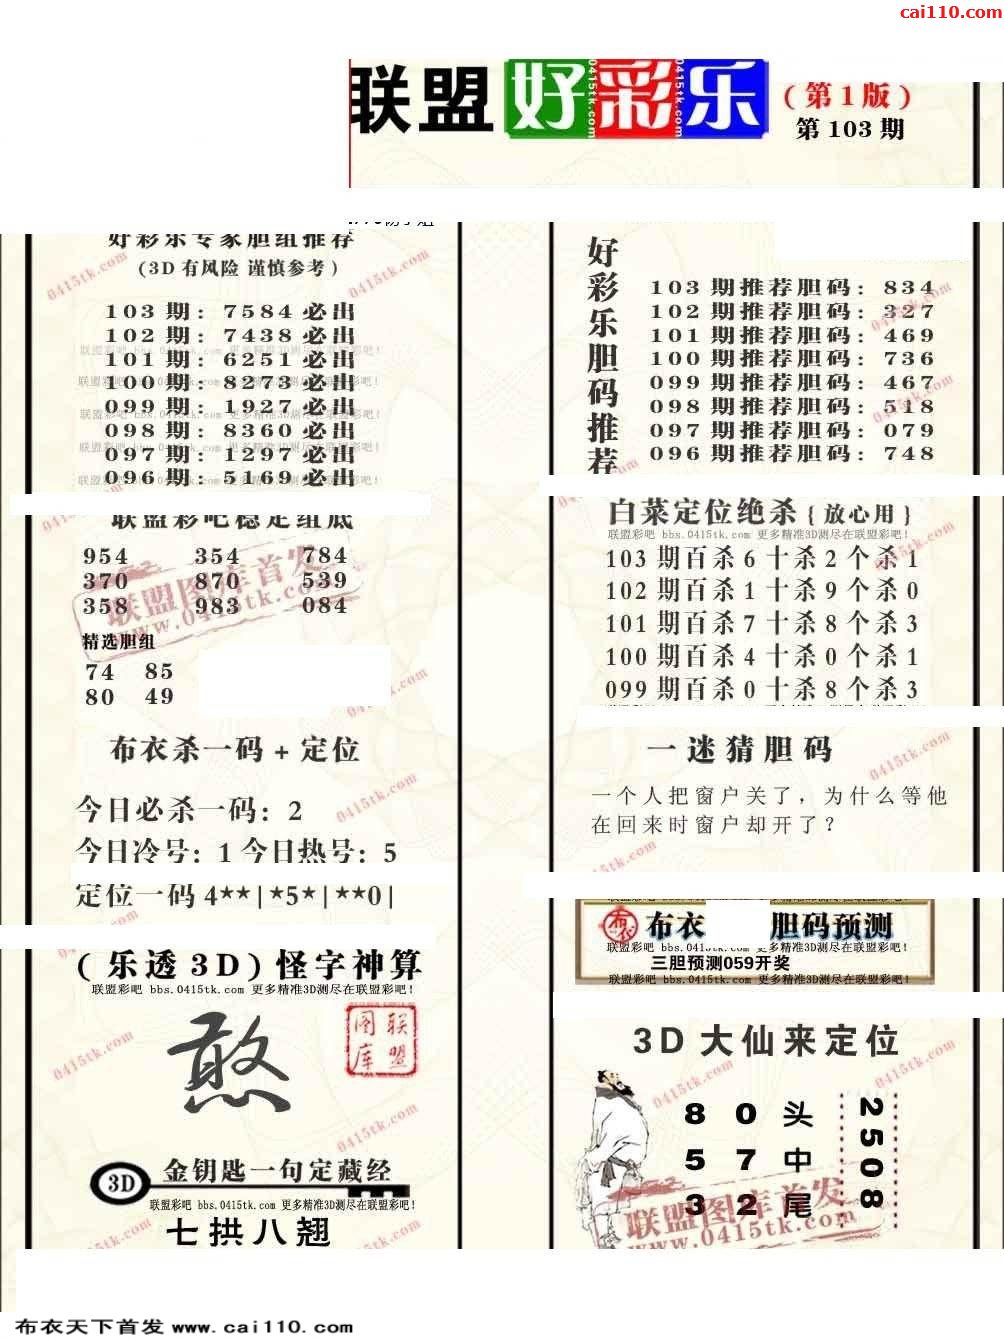 cai110.com
联盟 好彩乐
(第1版)
第 103 期
好彩乐专家胆组推荐
(3D 有风险 谨慎参考)
103 期: 7584 必出
102 期: 7438 必出
101 期: 6251 必出
100 期: 8273 必出
099 期: 1927 必出
098 期: 8360 必出
097 期: 1297 必出
096 期: 5169 必出
联盟彩吧稳定组底
954 354 784
370 870 539
358 983 084
精选胆组
74 85
80 49
布衣杀一码 + 定位
今日必杀一码: 2
今日冷号: 1 今日热号: 5
定位一码 4**|*5*|**0|
(乐透 3D) 怪字神算
联盟彩吧 bbs.0415tk.com 更多精准3D测尽在联盟彩吧!
憨
联盟图库
3D 金钥匙一句定藏经
联盟彩吧 bbs.0415tk.com 更多精准3D测尽在联盟彩吧!
七拱八翘
好彩乐胆码推荐
103 期推荐胆码: 834
102 期推荐胆码: 327
101 期推荐胆码: 469
100 期推荐胆码: 736
099 期推荐胆码: 467
098 期推荐胆码: 518
097 期推荐胆码: 079
096 期推荐胆码: 748
白菜定位绝杀{放心用}
联盟彩吧 bbs.0415tk.com 更多精准3D测尽在联盟彩吧!
103 期百杀 6 十杀 2 个杀 1
102 期百杀 1 十杀 9 个杀 0
101 期百杀 7 十杀 8 个杀 3
100 期百杀 4 十杀 0 个杀 1
099 期百杀 0 十杀 8 个杀 3
一迷猜胆码
一个人把窗户关了，为什么等他
在回来时窗户却开了?
布衣 胆码预测
联盟彩吧 bbs.0415tk.com 更多精准3D测尽在联盟彩吧!
三胆预测059开奖
联盟彩吧 bbs.0415tk.com 更多精准3D测尽在联盟彩吧!
3D 大仙来定位
8 0 头
5 7 中
3 2 尾
2508
联盟图库首发
www.0415tk.com
布衣天下首发 www.cai110.com